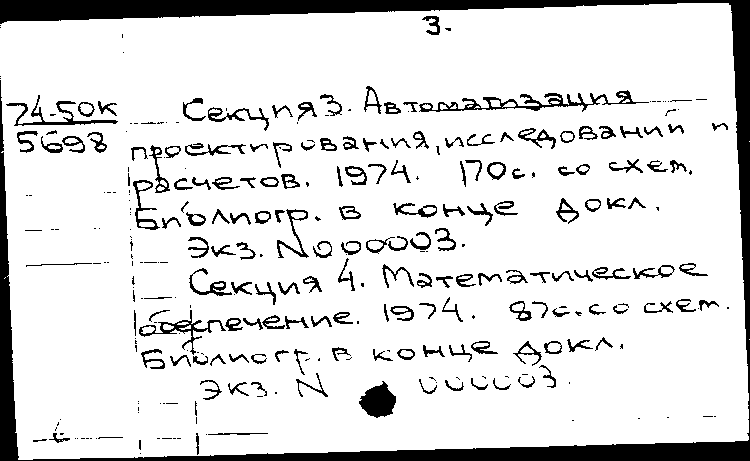 3.
74-50К Секция 3. Автоматизация
5698 проектирования, исследований и
расчетов. 1974. 170с. со схем.
Библиогр. в конце докл.
Экз. N000003.
Секция 4. Математическое
обеспечение. 1974. 87с. со схем.
Библиогр. в конце докл.
Экз. N 000003.